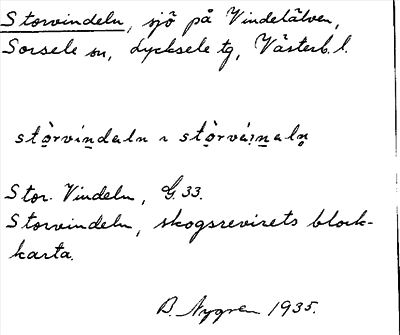 Storvindeln, sjö på Vindelälven,
Sorsele sn, Lycksele tg, Västerb. l.
Stor. Vindeln, G. 33.
Storvindeln, skogsrevirets block-
karta.
B. Nygren 1935.